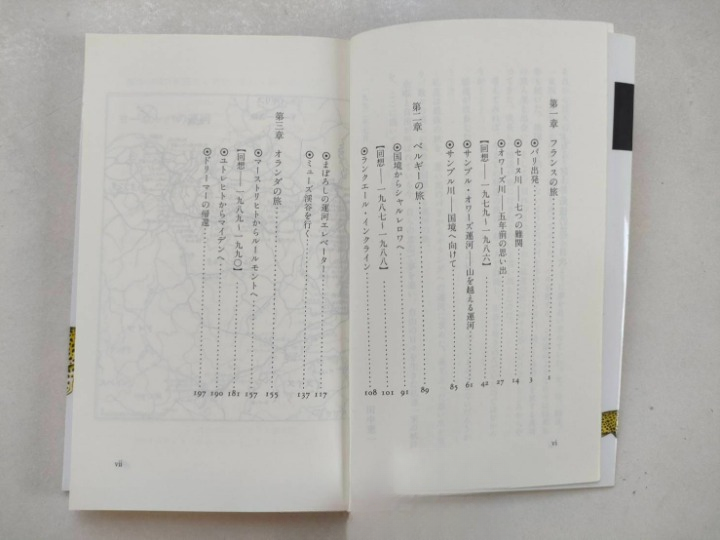 第一章 フランスの旅 1
◉パリ出発 3
◉セーヌ川――七つの難関 14
◉オワーズ川――五年前の思い出 27
【回想――一九七九~一九八六】 42
◉サンブル・オワーズ運河――山を越える運河 61
◉サンブル川――国境へ向けて 85
第二章 ベルギーの旅 89
◉国境からシャルレロワへ 91
【回想――一九八七~一九八八】 101
◉ランクエール・インクライン 108
vi
◉まぼろしの運河エレベーター 117
◉ミューズ渓谷を行く 137
第三章 オランダの旅 155
◉マーストリヒトからルールモントへ 157
【回想――一九八九~一九九〇】 181
◉ユトレヒトからマイデンへ 190
◉ドリーマーの帰還 197
vii